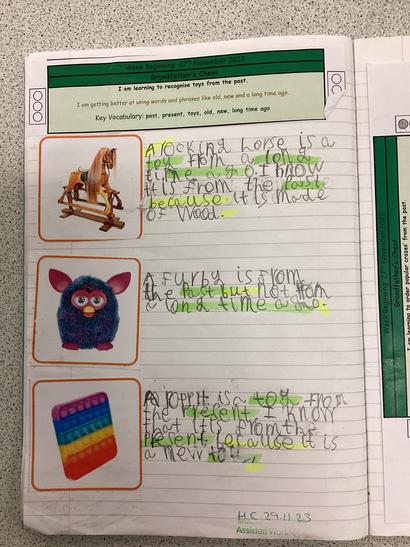 Week Beginning: 27th November 2023
Grandfather's Chest
I am learning to recognise toys from the past.
I am getting better at using words and phrases like old, new and a long time ago.
Key Vocabulary: past, present, toys, old, new, long time ago
A rocking horse is a
toy from a long
time ago. I know
it is from the past
because it is made
of wood.
A Furby is from
the past but not from
a long time ago.
A poppit is a toy from
the present. I know
that it is from the
present because it is
a new toy.
H.C 29.11.23
Assisted Work
Week Beginning: 27th November 2023
Grandfather's Chest